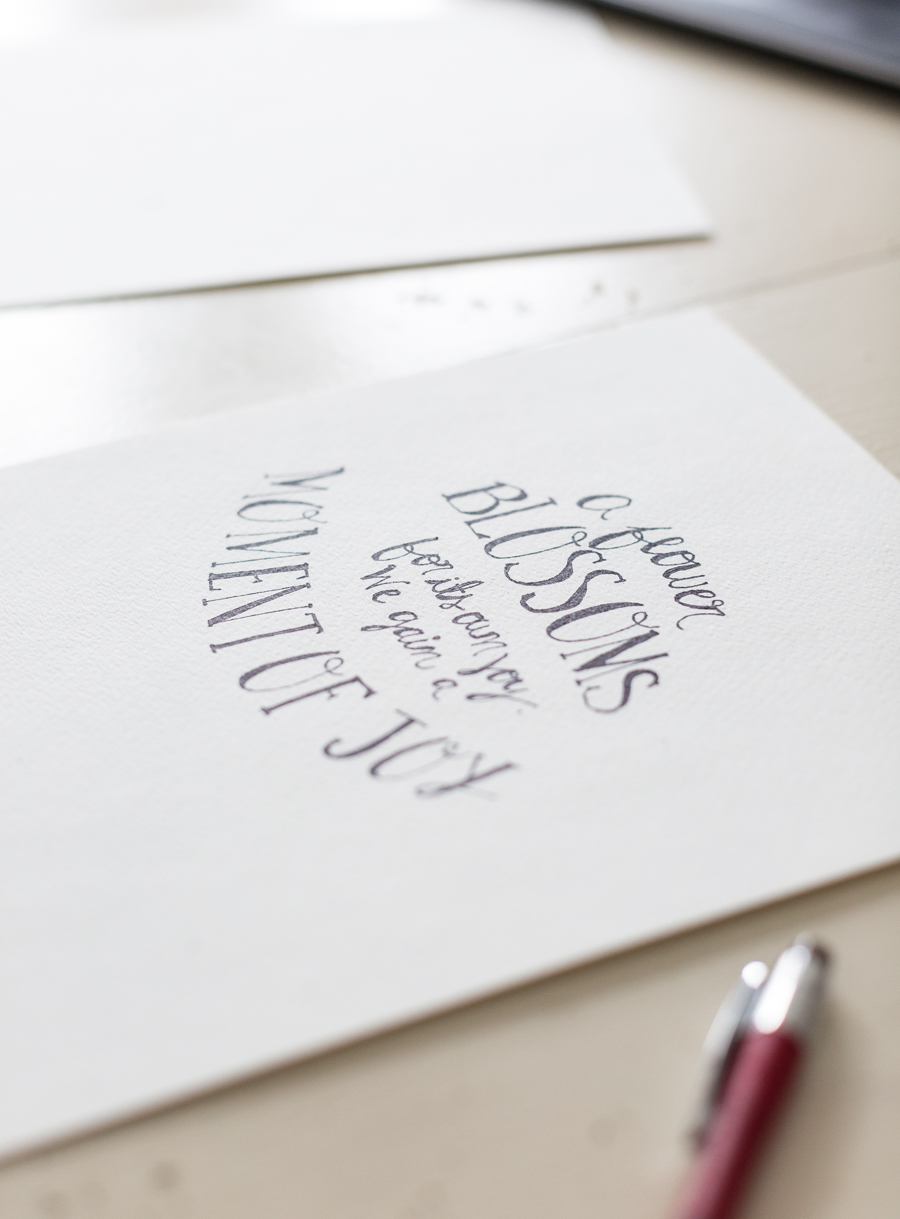 a flower
BLOSSOMS
for its own joy.
We gain a
MOMENT OF JOY